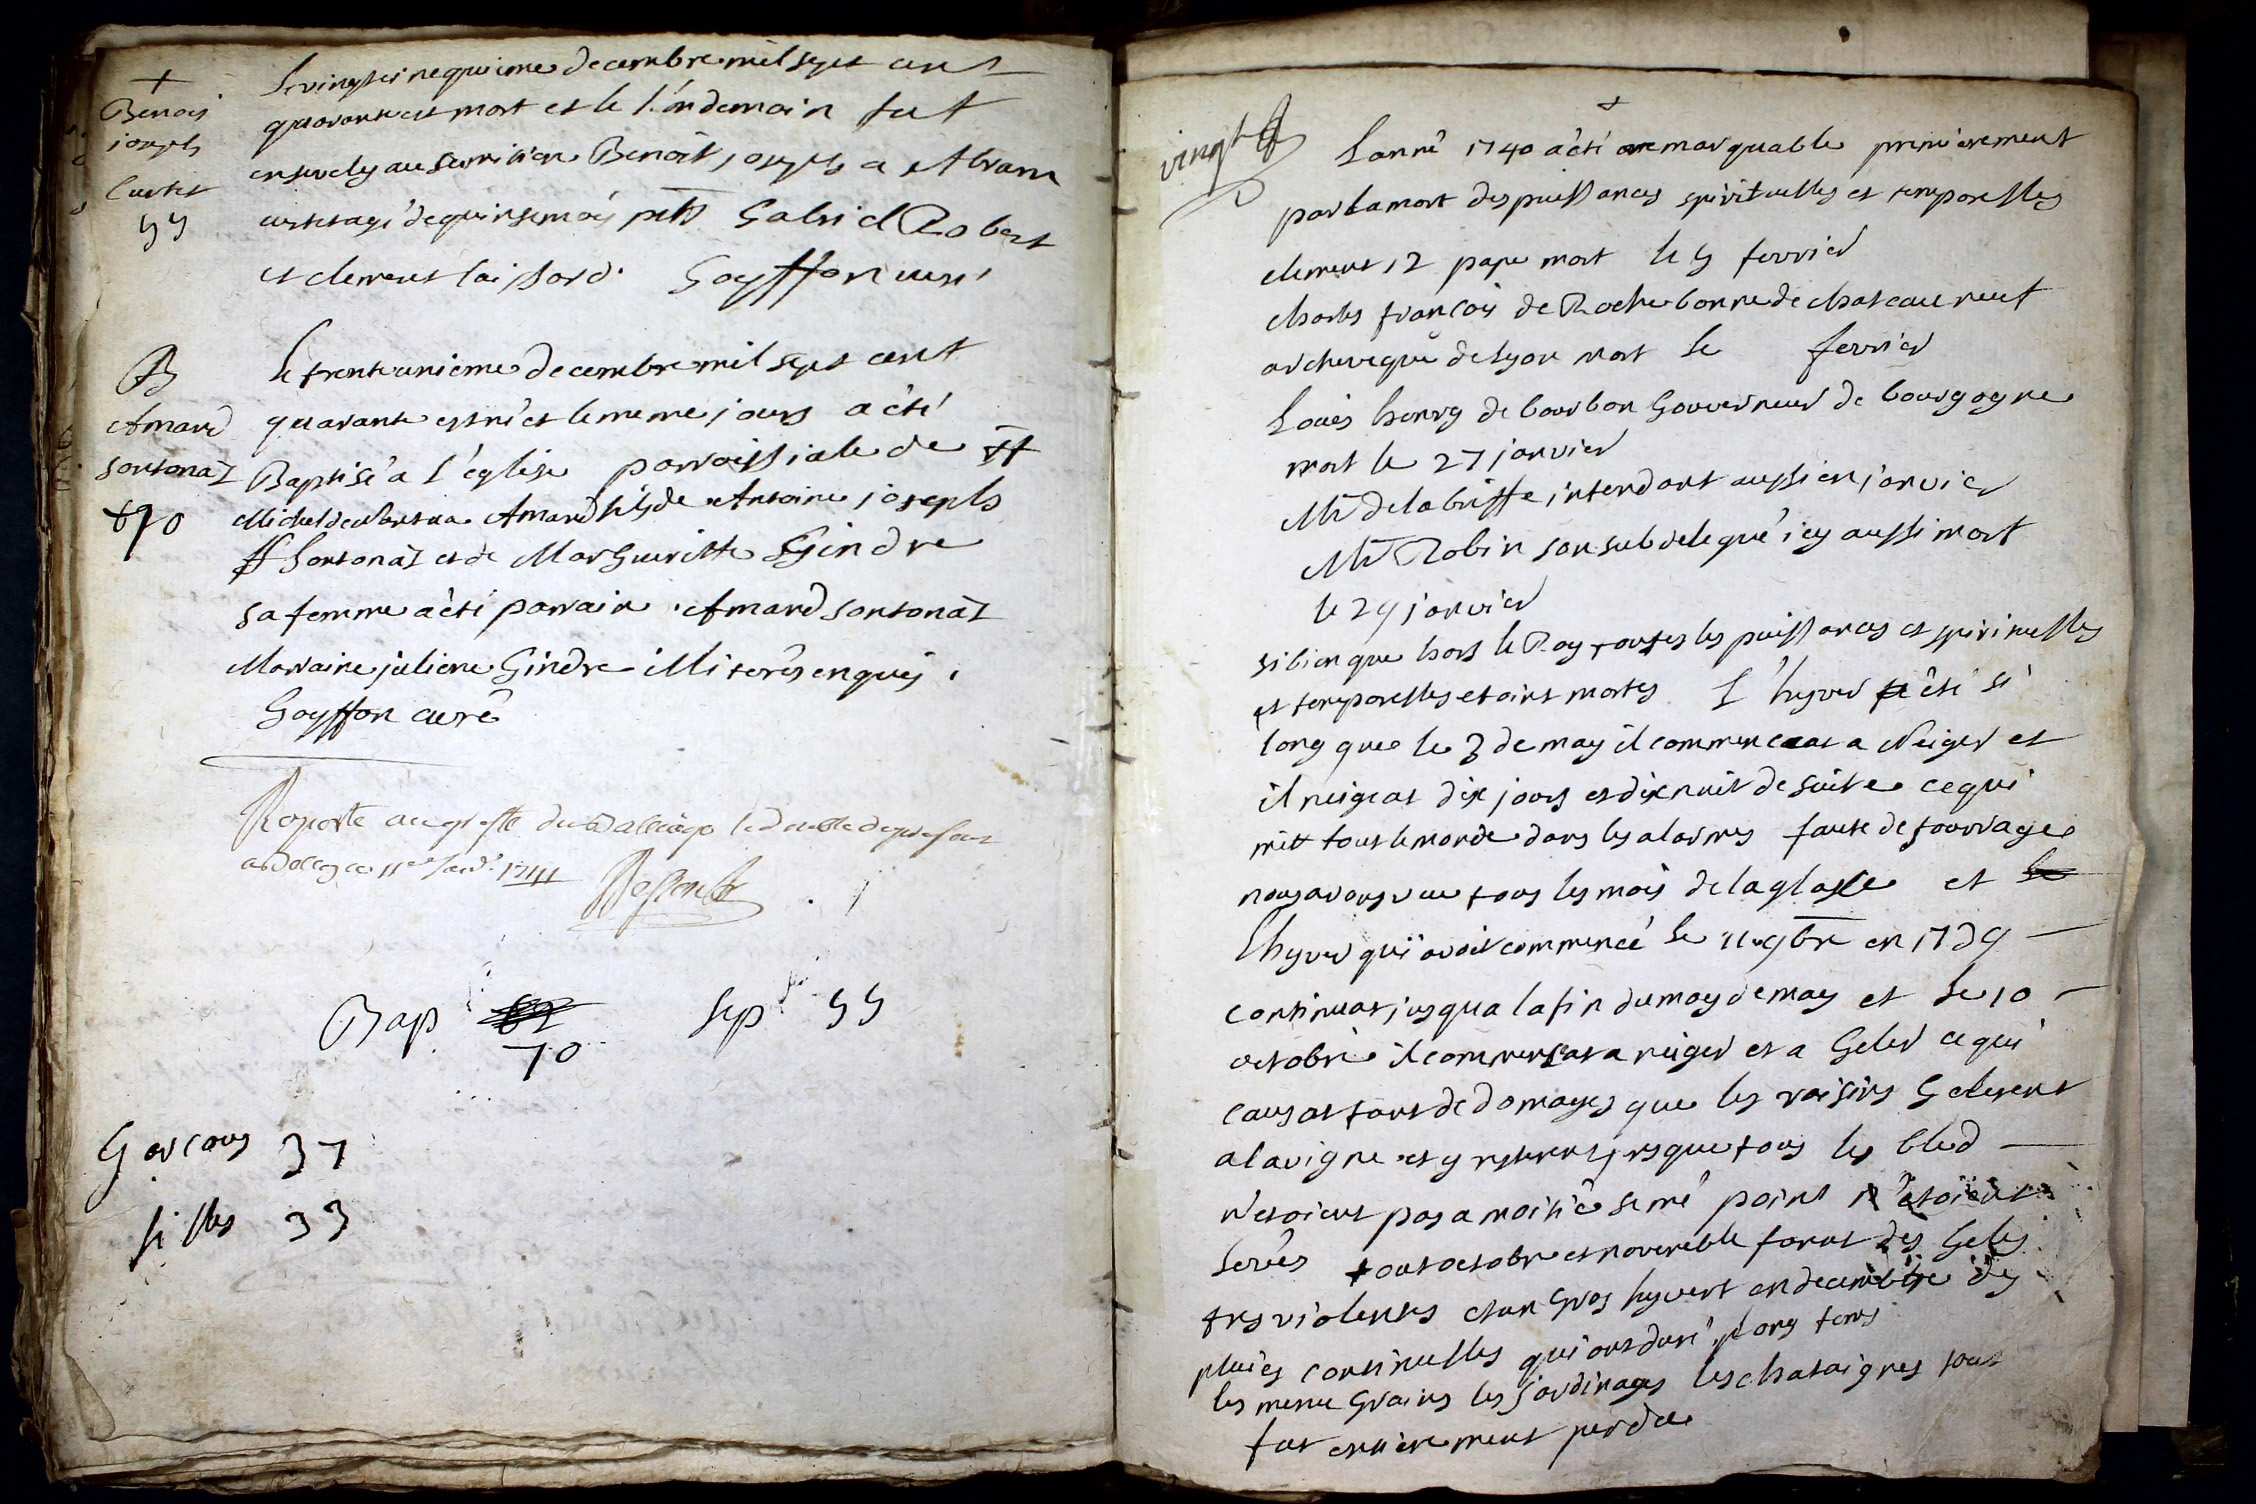 +
Benois
joseph
Curtet
55
Le vingt cinquieme decembre mil sept cent
quarante est mort et le l'andemain fut
ensevely au semitiere Benoit joseph a Abram
curtet agé de quinse mois pnts Gabriel Robert
et clement
Goyffon curé
B
Amard
sontonaz
70
le trente unieme decembre mil sept cent
quarante est né et le meme jours a eté
Baptisé a l'eglise parroissiale de st
Michel de Amard fils de Antoine joseph
Sontonaz et de Margueritte Gindre
sa femme a eté parrain Amard sontonaz
Marraine juliene Gindre illiterés enquis.
Goyffon curé
Raporté au greffe du Balliage le double du present
a Belley ce 11e 1741
Bap 70 sep 55
Garcons 37
filles 33
vingt
+
Lanné 1740 a eté remarquable premierement
par la mort des puissances spirituelles et temporelles
clement 12 pape mort le 5 fevrier
charles françois de Rochebonne de chateauneuf
archeveque de lyon mort le fevrier
Louis henry de bourbon Gouverneur de bourgogne
mort le 27 janvier
Mr de la briffe intendant aussi en janvier
Mr Robin son subdelegué icy aussi mort
le 29 janvier
si bien que hors le Roy toutes les puissances et spirituelles
et temporelles etoint mortes L'hyver a eté si
long que le 3 de may il commencat a Neiger et
il neigeat dix jours et dix nuit de suite ce qui
mit tout le monde dans les alarmes faute de fourrage
nous avons vue tous les mois de la glasse et
lhyver qui avoit commencé le 11 9bre en 1739
continuat jusqua la fin du moy de may et le 10
octobre il commensat a neiger et a Geler ce qui
causat tant de domages que les raisins Gelerent
a la vigne et y resterent presque tous les bled
n'etoient pas a moitié semé point n'etoient
levés tout octobre et novembre furent des Gelés
tres violentes et un Gros hyvert en decembre des
pluies continuelles qui ont duré long tems
les menu Grains les jardinages les chataignes tout
fut entierement perdue